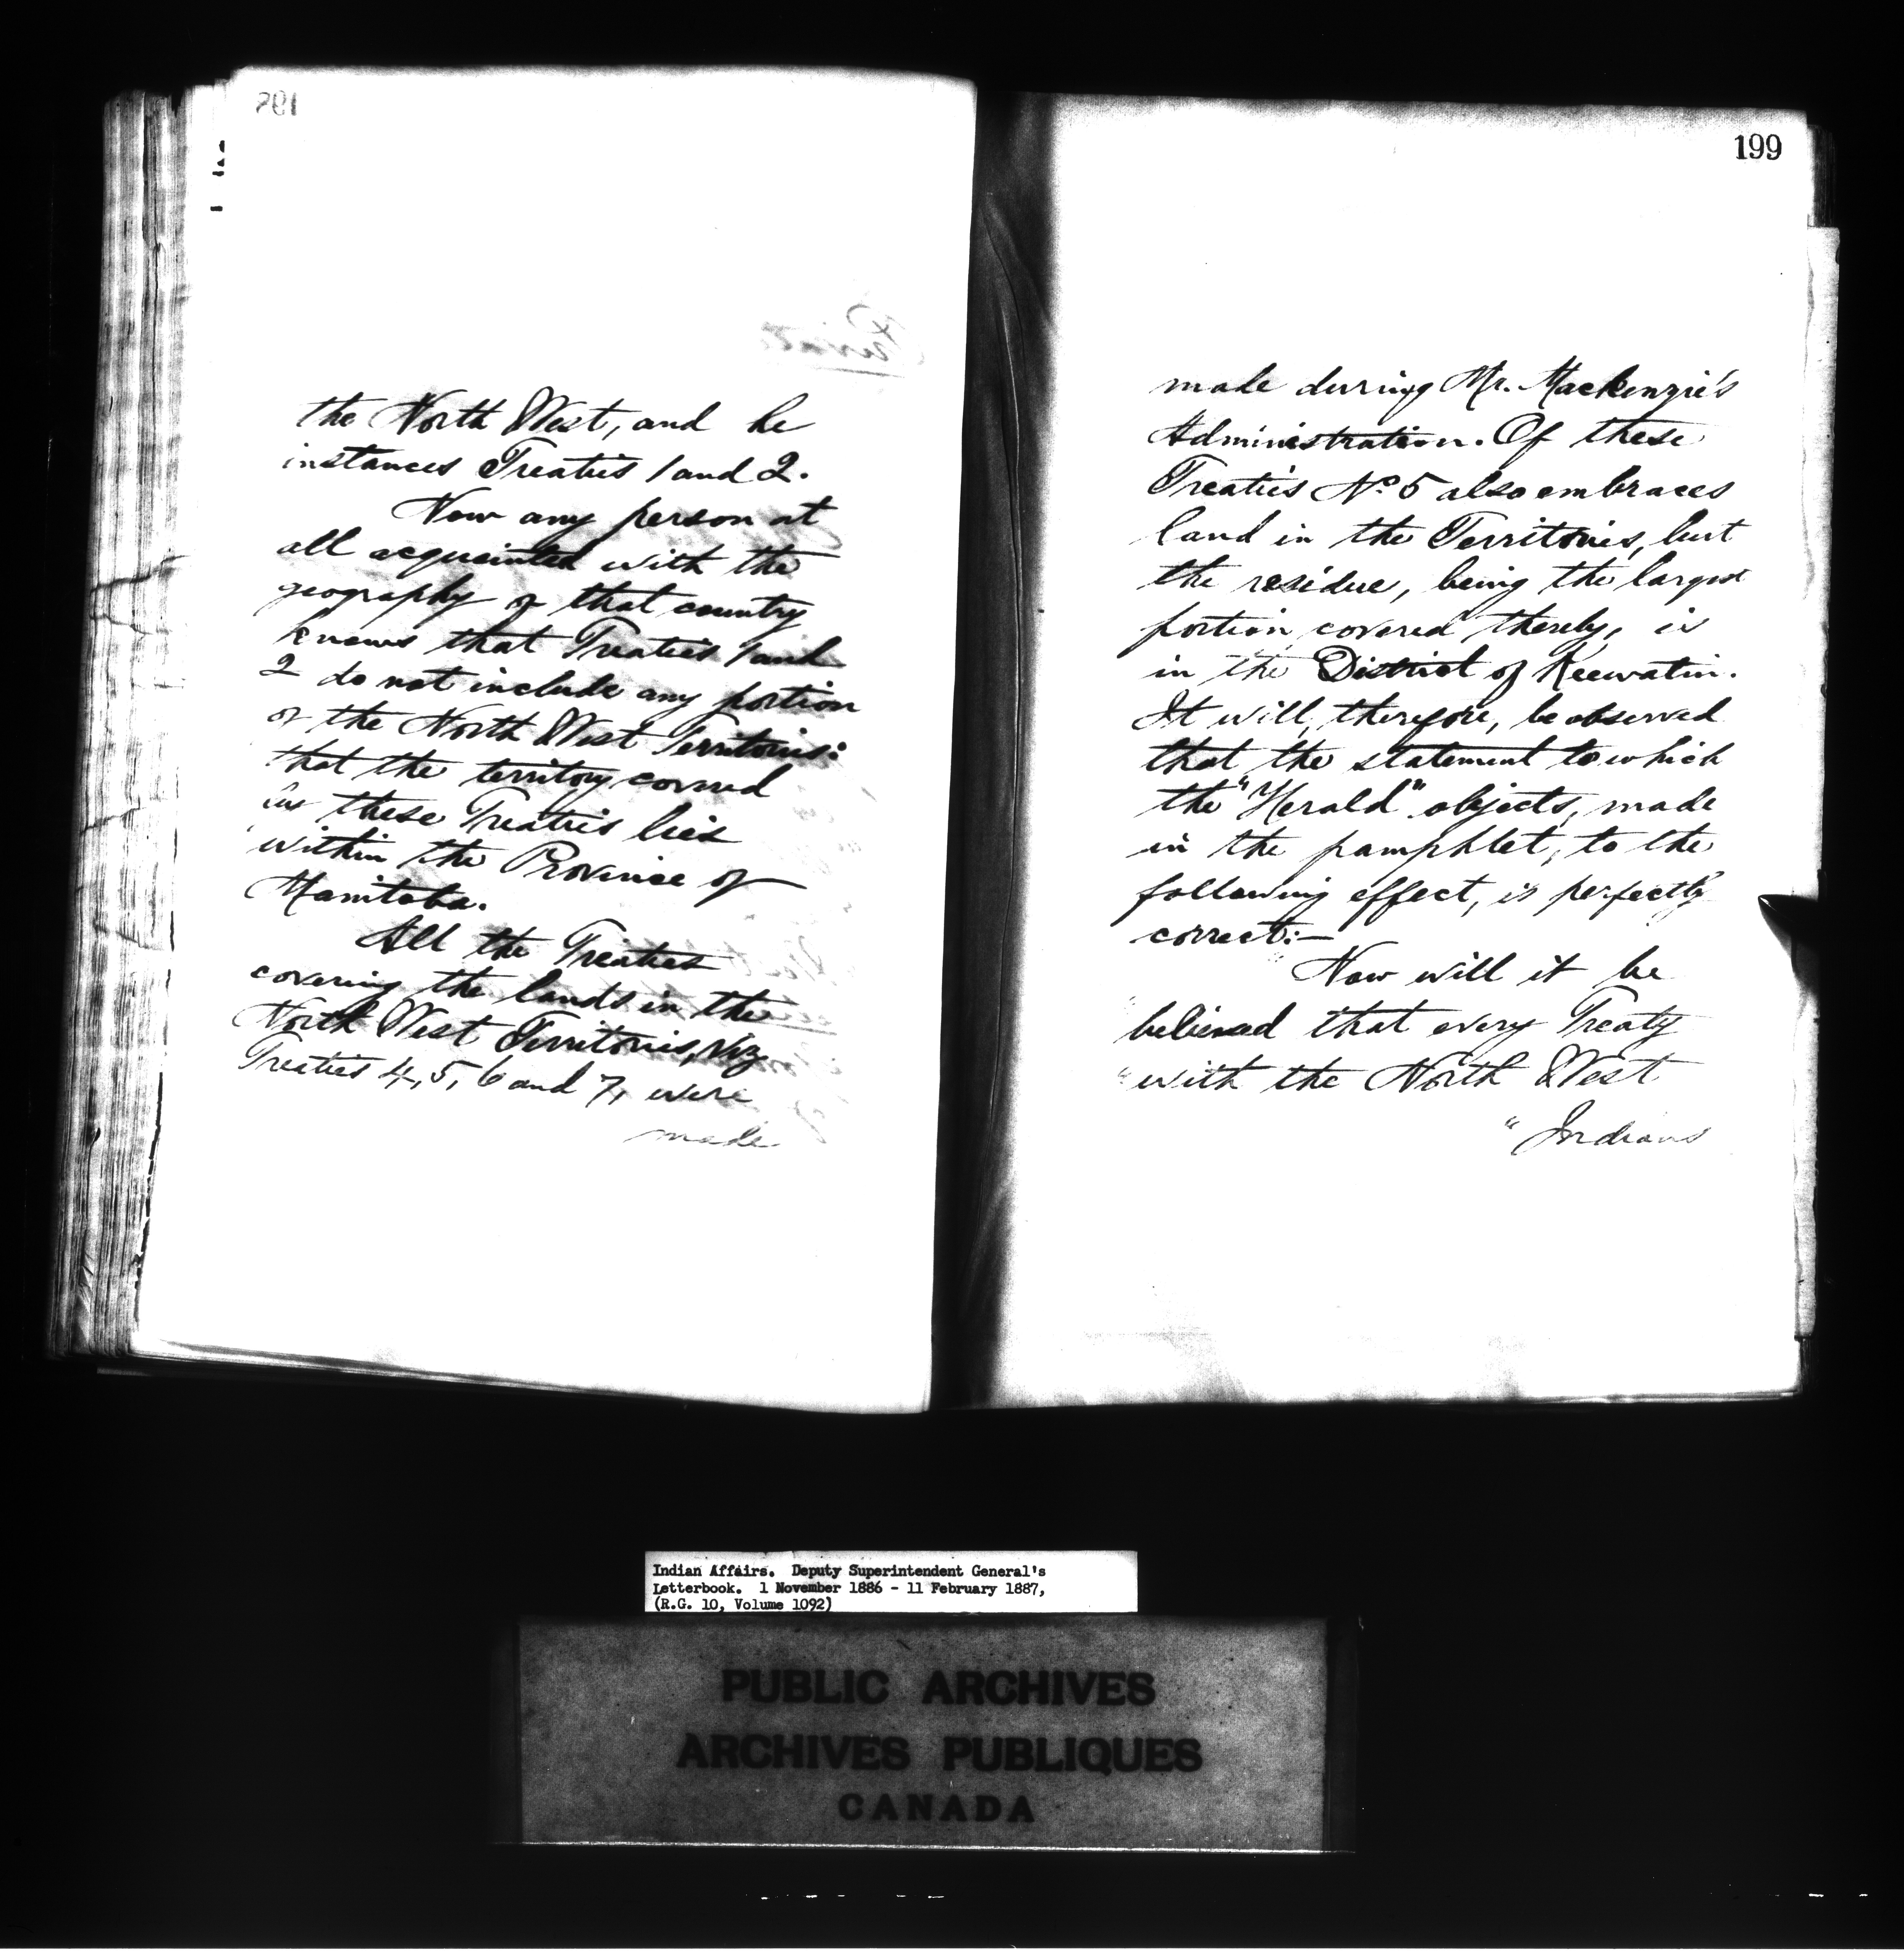 the North West, and he
instances Treaties 1 and 2.
Now any person at
all acquainted with the
geography of that country
knows that Treaties 1 and
2 do not include any portion
of the North West Territories:
that the territory covered
by these Treaties lies
within the Province of
Manitoba.
All the Treaties
covering the lands in the
North West Territories, viz
Treaties 4, 5, 6 and 7, were
made
199
made during Mr. Mackenzie's
Administration. Of these
Treaties No. 5 also embraces
land in the Territories, but
the residue, being the largest
portion covered thereby, is
in the District of Keewatin.
It will, therefore, be observed
that the statement to which
the "Herald" objects, made
in the pamphlet, to the
following effect, is perfectly
correct:—
"Now will it be
"believed that every Treaty
"with the North West
"Indians
Indian Affairs. Deputy Superintendent General's
Letterbook. 1 November 1886 - 11 February 1887,
(R.G. 10, Volume 1092)
PUBLIC ARCHIVES
ARCHIVES PUBLIQUES
CANADA